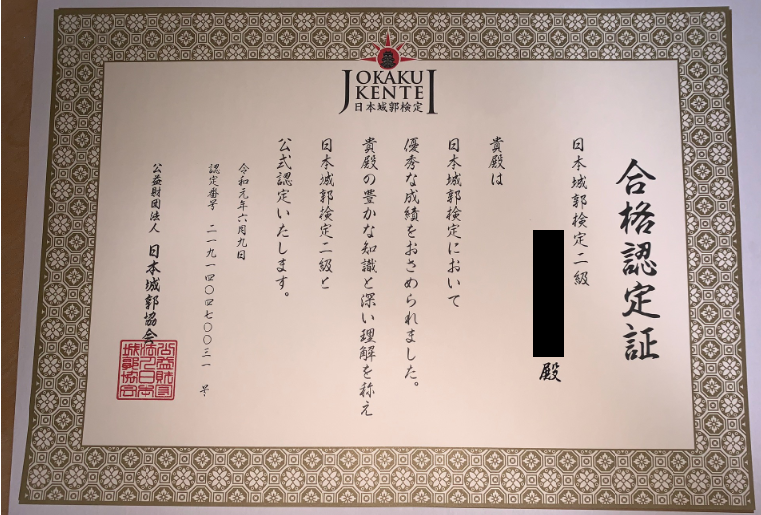 JOKAKU
KENTEI
日本城郭検定
合格認定証
日本城郭検定二級
殿
貴殿は
日本城郭検定において
優秀な成績をおさめられました。
貴殿の豊かな知識と深い理解を称え
日本城郭検定二級と
公式認定いたします。
令和元年六月九日
認定番号 二一九一四〇四七〇〇三一 号
公益財団法人 日本城郭協会
公益財団
法人日本
城郭協会